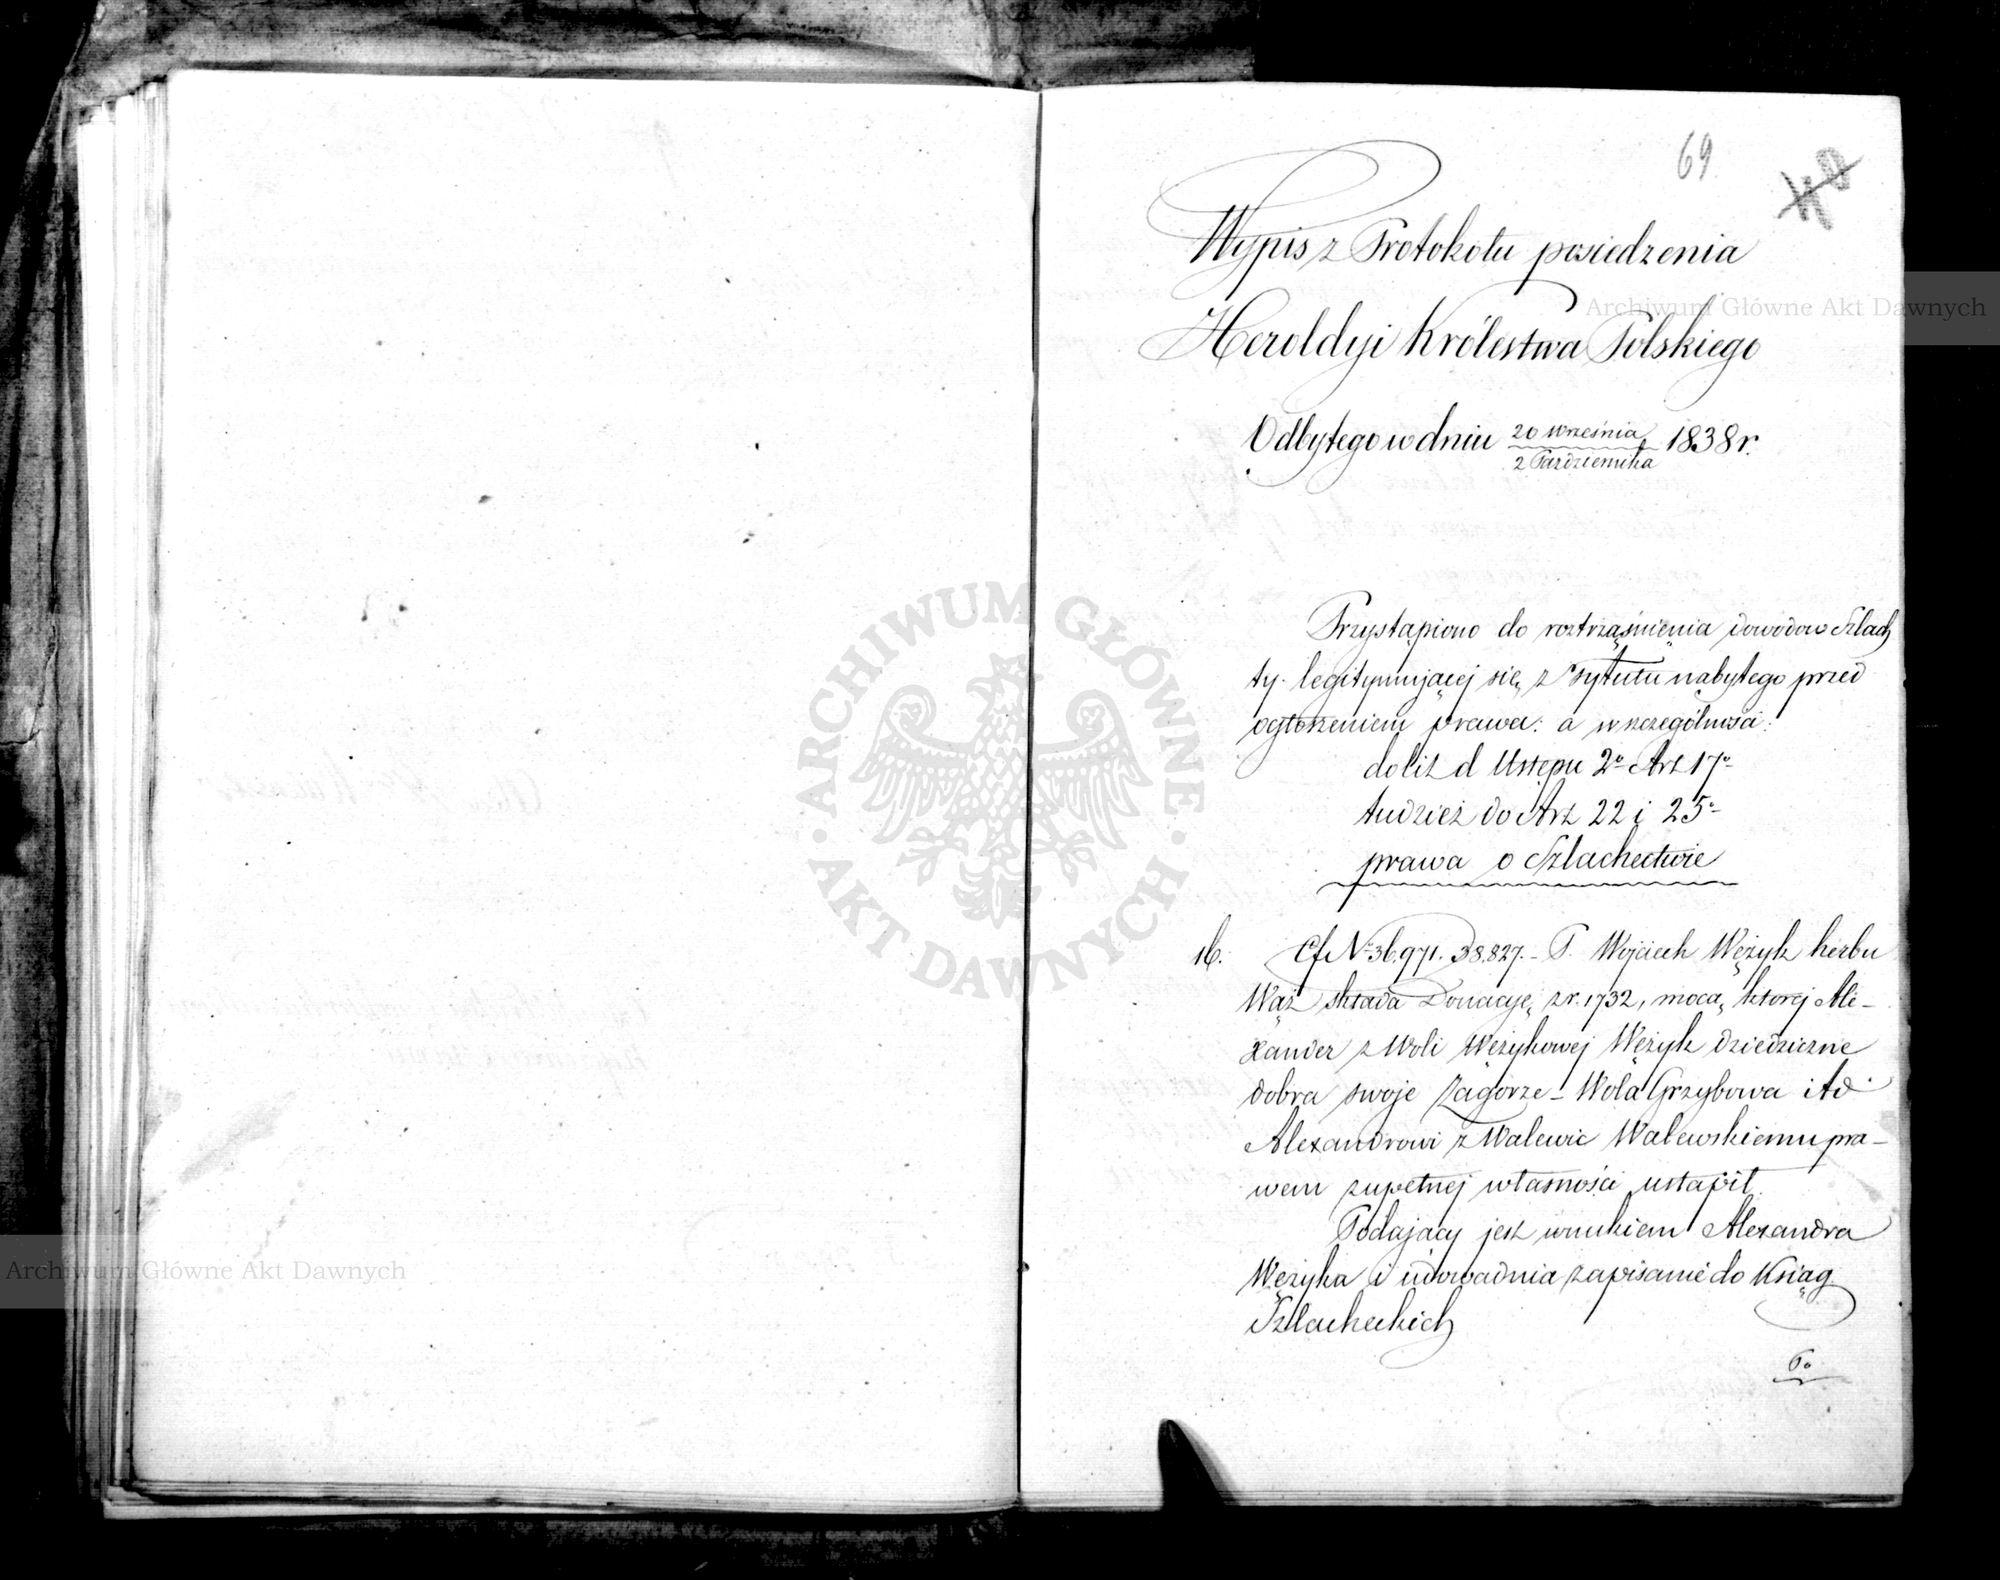 69
Wypis z Protokołu posiedzenia
Heroldyi Królestwa Polskiego
Odbytego w dniu 20 września / 2 Październka 1838 r.
Przystąpiono do roztrząśnienia dowodow Szlach
ty legitymującej się z Tytułu nabytego przed
ogłoszeniem prawa: a w szczególności:
do lit d Ustępu 2º Art 17º
tudzież do Art 22 i 25º
prawa o Szlachectwie
16. Cf Nº 36,971. 38,827. – P. Wojciech Wężyk herbu
Wąż składa Donacyę z r. 1732, mocą ktorej Ale-
xander z Woli Wężykowej Wężyk dziedziczne
dobra swoje Zagórze – Wola Grzybowa itd
Alexandrowi z Walewic Walewskiemu pra-
wem zupełnej własności ustąpił.
Podający jest wnukiem Alexandra
Wężyka i udowadnia zapisanie do Ksiąg
Szlacheckich
Po
Archiwum Główne Akt Dawnych
Archiwum Główne Akt Dawnych
ARCHIWUM GŁÓWNE · AKT DAWNYCH ·